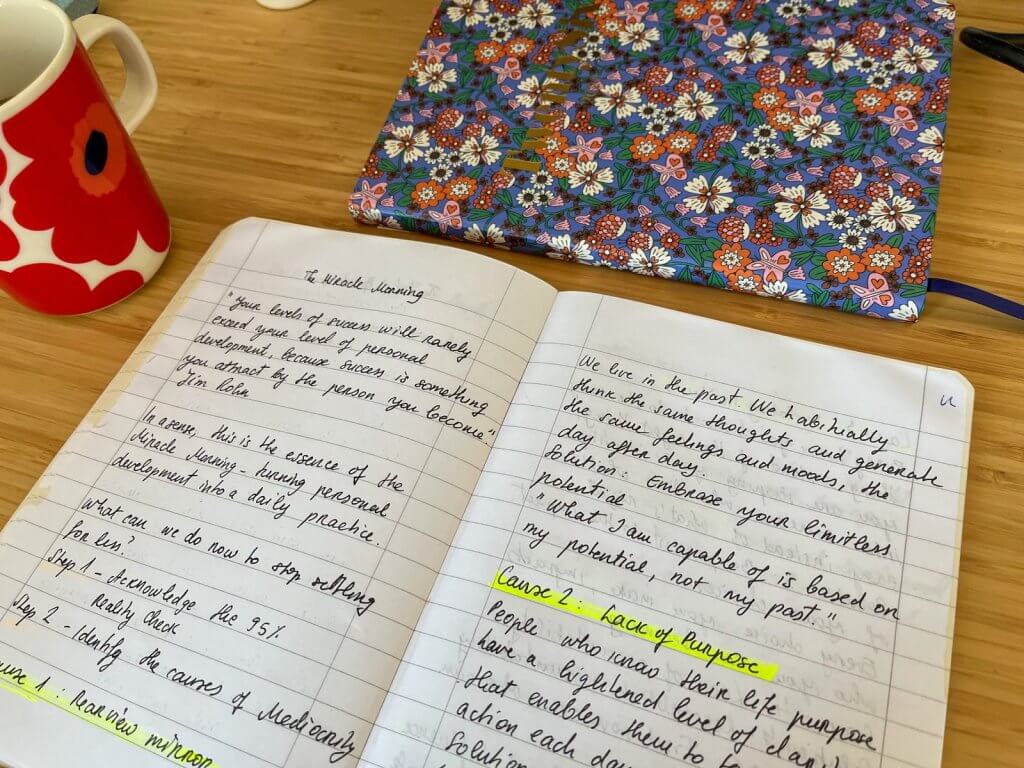 The Miracle Morning
"Your levels of success will rarely
exceed your level of personal
development, because success is something
you attract by the person you become"
Jim Rohn
In a sense, this is the essence of the
Miracle Morning - turning personal
development into a daily practice.
What can we do now to stop settling
for less?
Step 1 - Acknowledge the 95%
Reality Check
Step 2 - Identify the causes of Mediocrity
Cause 1: Rearview mirror
We live in the past. We habitually
think the same thoughts and generate
the same feelings and moods, the
day after day.
Solution: Embrase your limitless
potential
"What I am capable of is based on
my potential, not my past."
Cause 2: Lack of Purpose
People who know their life purpose
have a hightened level of
that enables them to
action each day
Solution